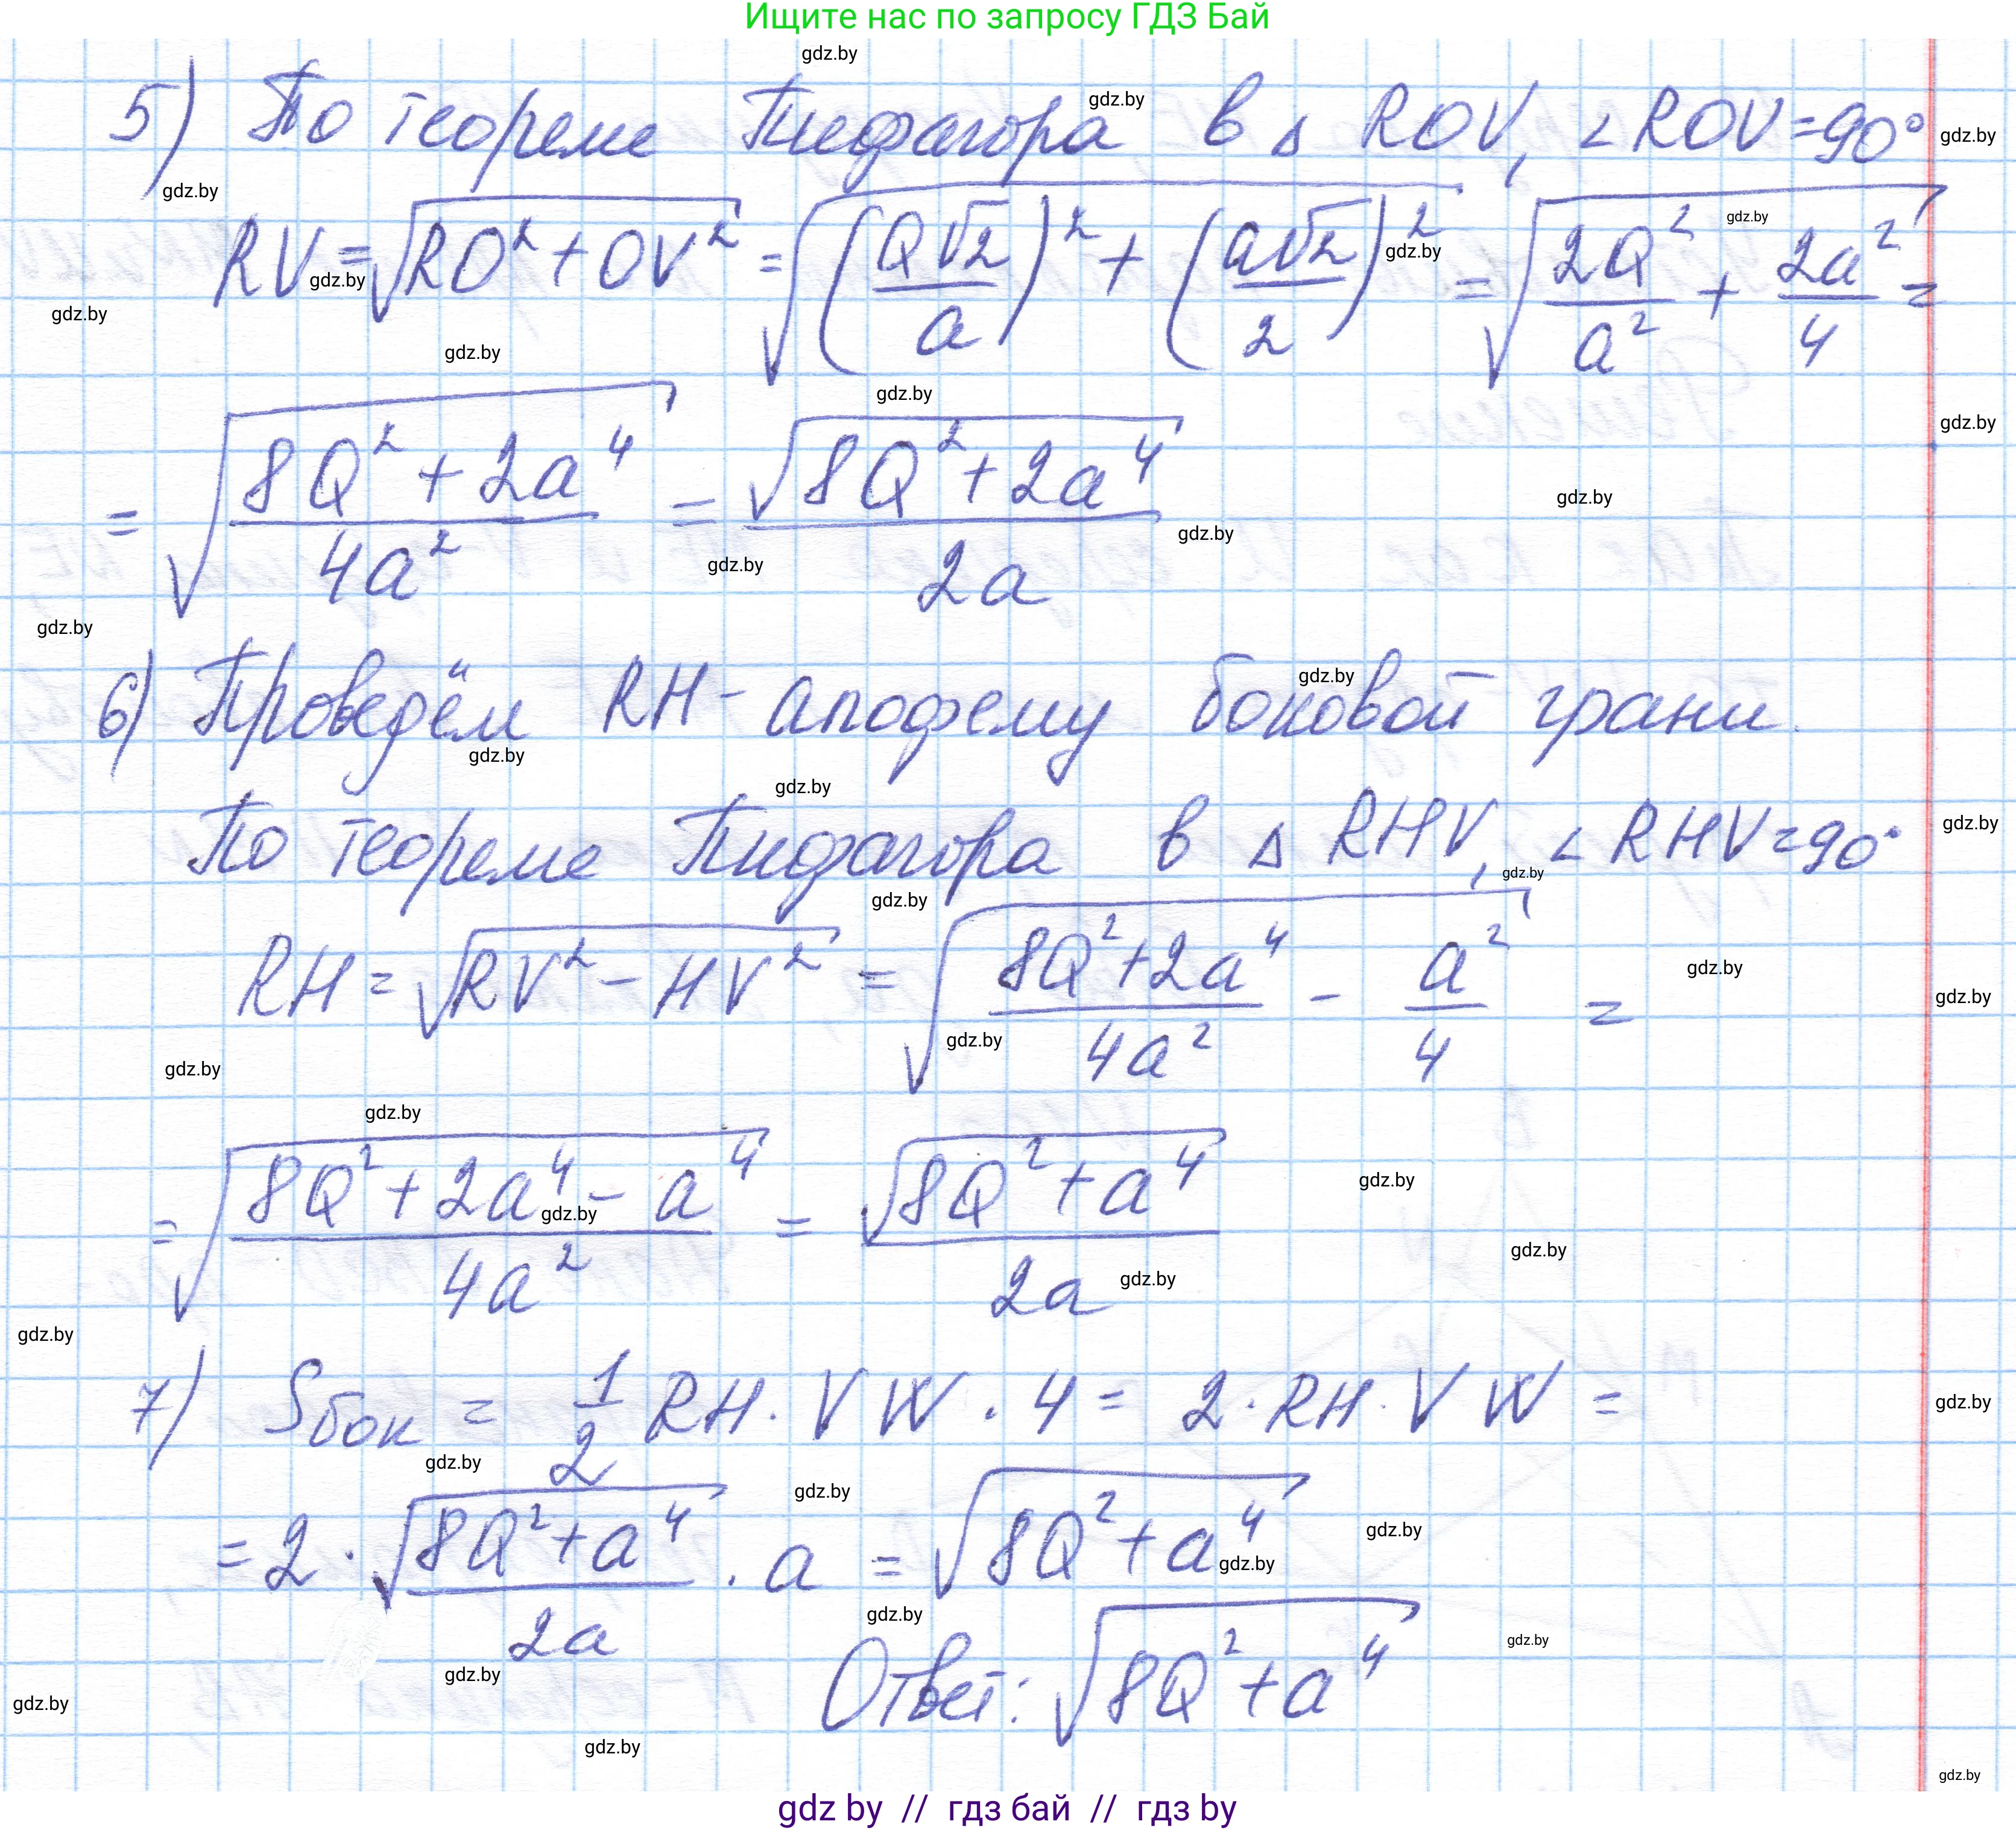 Ищите нас по запросу ГДЗ Бай
gdz.by
5) По теореме Пифагора в Δ ROV, ∠ROV=90°
RV=√(RO²+OV²) = √((Q√2/a)² + (a√2/2)²) = √(2Q²/a² + 2a²/4) =
= √((8Q²+2a⁴)/4a²) = √(8Q²+2a⁴)/2a
6) Проведём RH - апофему боковой грани.
По теореме Пифагора в Δ RHV, ∠RHV=90°
RH = √(RV²-HV²) = √((8Q²+2a⁴)/4a² - a²/4) =
= √((8Q²+2a⁴-a⁴)/4a²) = √(8Q²+a⁴)/2a
7) Sбок = 1/2 RH · VW · 4 = 2 · RH · VW =
= 2 · √(8Q²+a⁴)/2a · a = √(8Q²+a⁴)
Ответ: √(8Q²+a⁴)
gdz by // гдз бай // гдз by